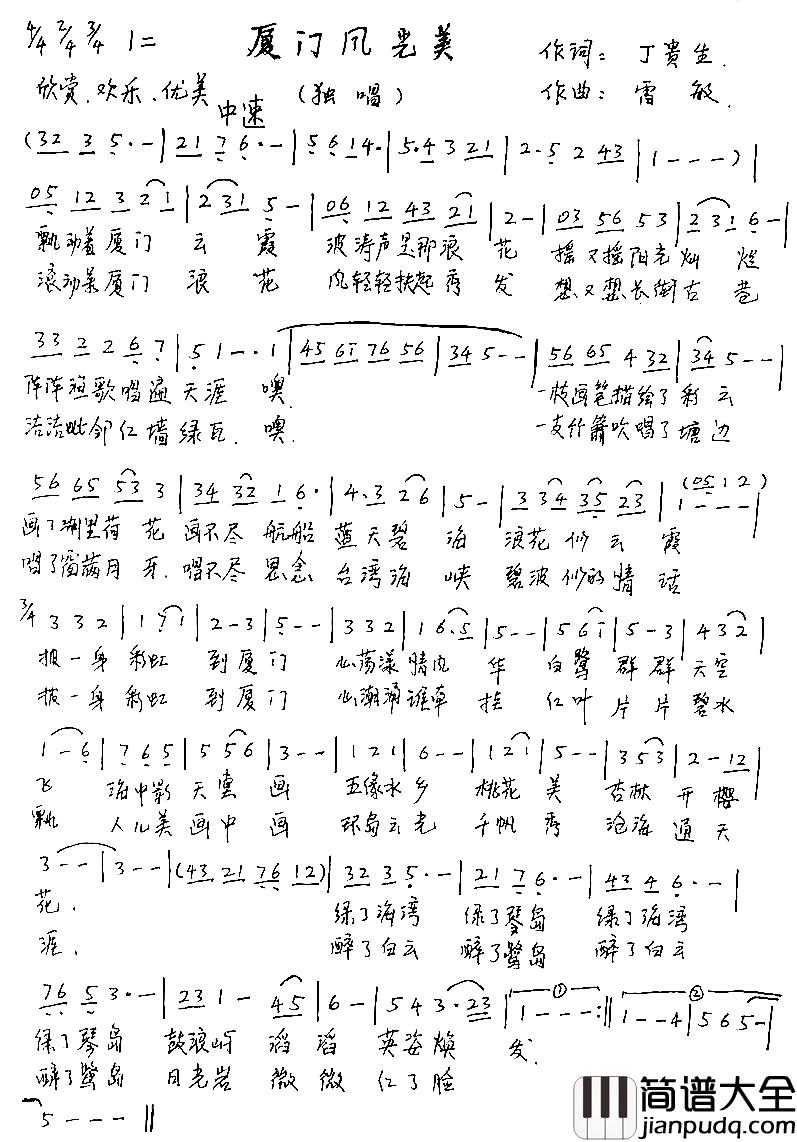 4/4 2/4 3/4 1= 厦门风光美 作词：丁贵生
欣赏、欢乐、优美 中速 （独唱） 作曲：雷敏
(32 3 5·- | 21 7 6·- | 5 6 14· | 5·4 3 21 | 2·5 2 43 | 1 - - - ) |
05 12 3 21 | 231 5 - | 06 12 43 21 | 2 - | 03 56 53 | 231 6 - |
飘动着厦门 云 霞 波涛声是那浪 花 摇又摇阳光灿 烂
滚动着厦门 浪 花 风轻轻扶起秀 发 想又想长街古 巷
33 2 2 6 7 | 5 1 - - ·1 | 45 61 76 56 | 34 5 - - | 56 65 4 32 | 34 5 - - |
阵阵渔歌唱遍 天涯 噢 一枝画笔描绘了彩云
洁洁毗邻红墙绿瓦. 噢. 一支竹箫吹唱了塘边
56 65 53 3 | 34 32 1 6· | 4·3 26 | 5 - | 3 34 35 23 | 1 - - - | (05 12)
画了湖里荷 花 画不尽 航船 蓝天碧 海 浪花似云霞
唱了窗满月 牙. 唱不尽 思念 台湾海 峡 碧波似的情话
3/4 3 3 2 | 1 71 | 2 - 3 | 5 - - | 3 3 2 | 1 6·5 | 5 - - | 5 61 | 5 - 3 | 4 32 |
披一身 彩虹 到厦门 心荡漾情风 华 白鹭 群群天空
披一身 彩虹 到厦门 心潮涌 挂 红叶 片片碧水
1 - 6 | 7 6 5 | 5 56 | 3 - - | 1 2 1 | 6 - - | 1 21 | 5 - - | 3 53 | 2 - 12 |
飞 海中影 天堂 画 五缘水乡 桃花 美 杏林 开樱
飘 人儿美 画中 画 环岛云光 千帆 秀 沧海 通天
3 - - | 3 - - | (43 21 76 12) | 32 3 5·- | 21 7 6·- | 43 4 6·- |
花. 绿了海湾 绿了琴岛 绿了海湾
涯. 醉了白云 醉了鹭岛 醉了白云
76 5 3·- | 23 1 - 45 | 6 - | 5 4 3·23 | ① 1 - - - :‖ ② 1 - - 4 | 5 6 5 - |
绿了琴岛 鼓浪屿 滔 滔 英姿焕 发.
醉了鹭岛 日光岩 微 微 红了脸
5 - - - ‖
简谱大全
jianpudq.com